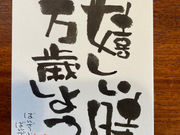 嬉しい時
万歳しよう